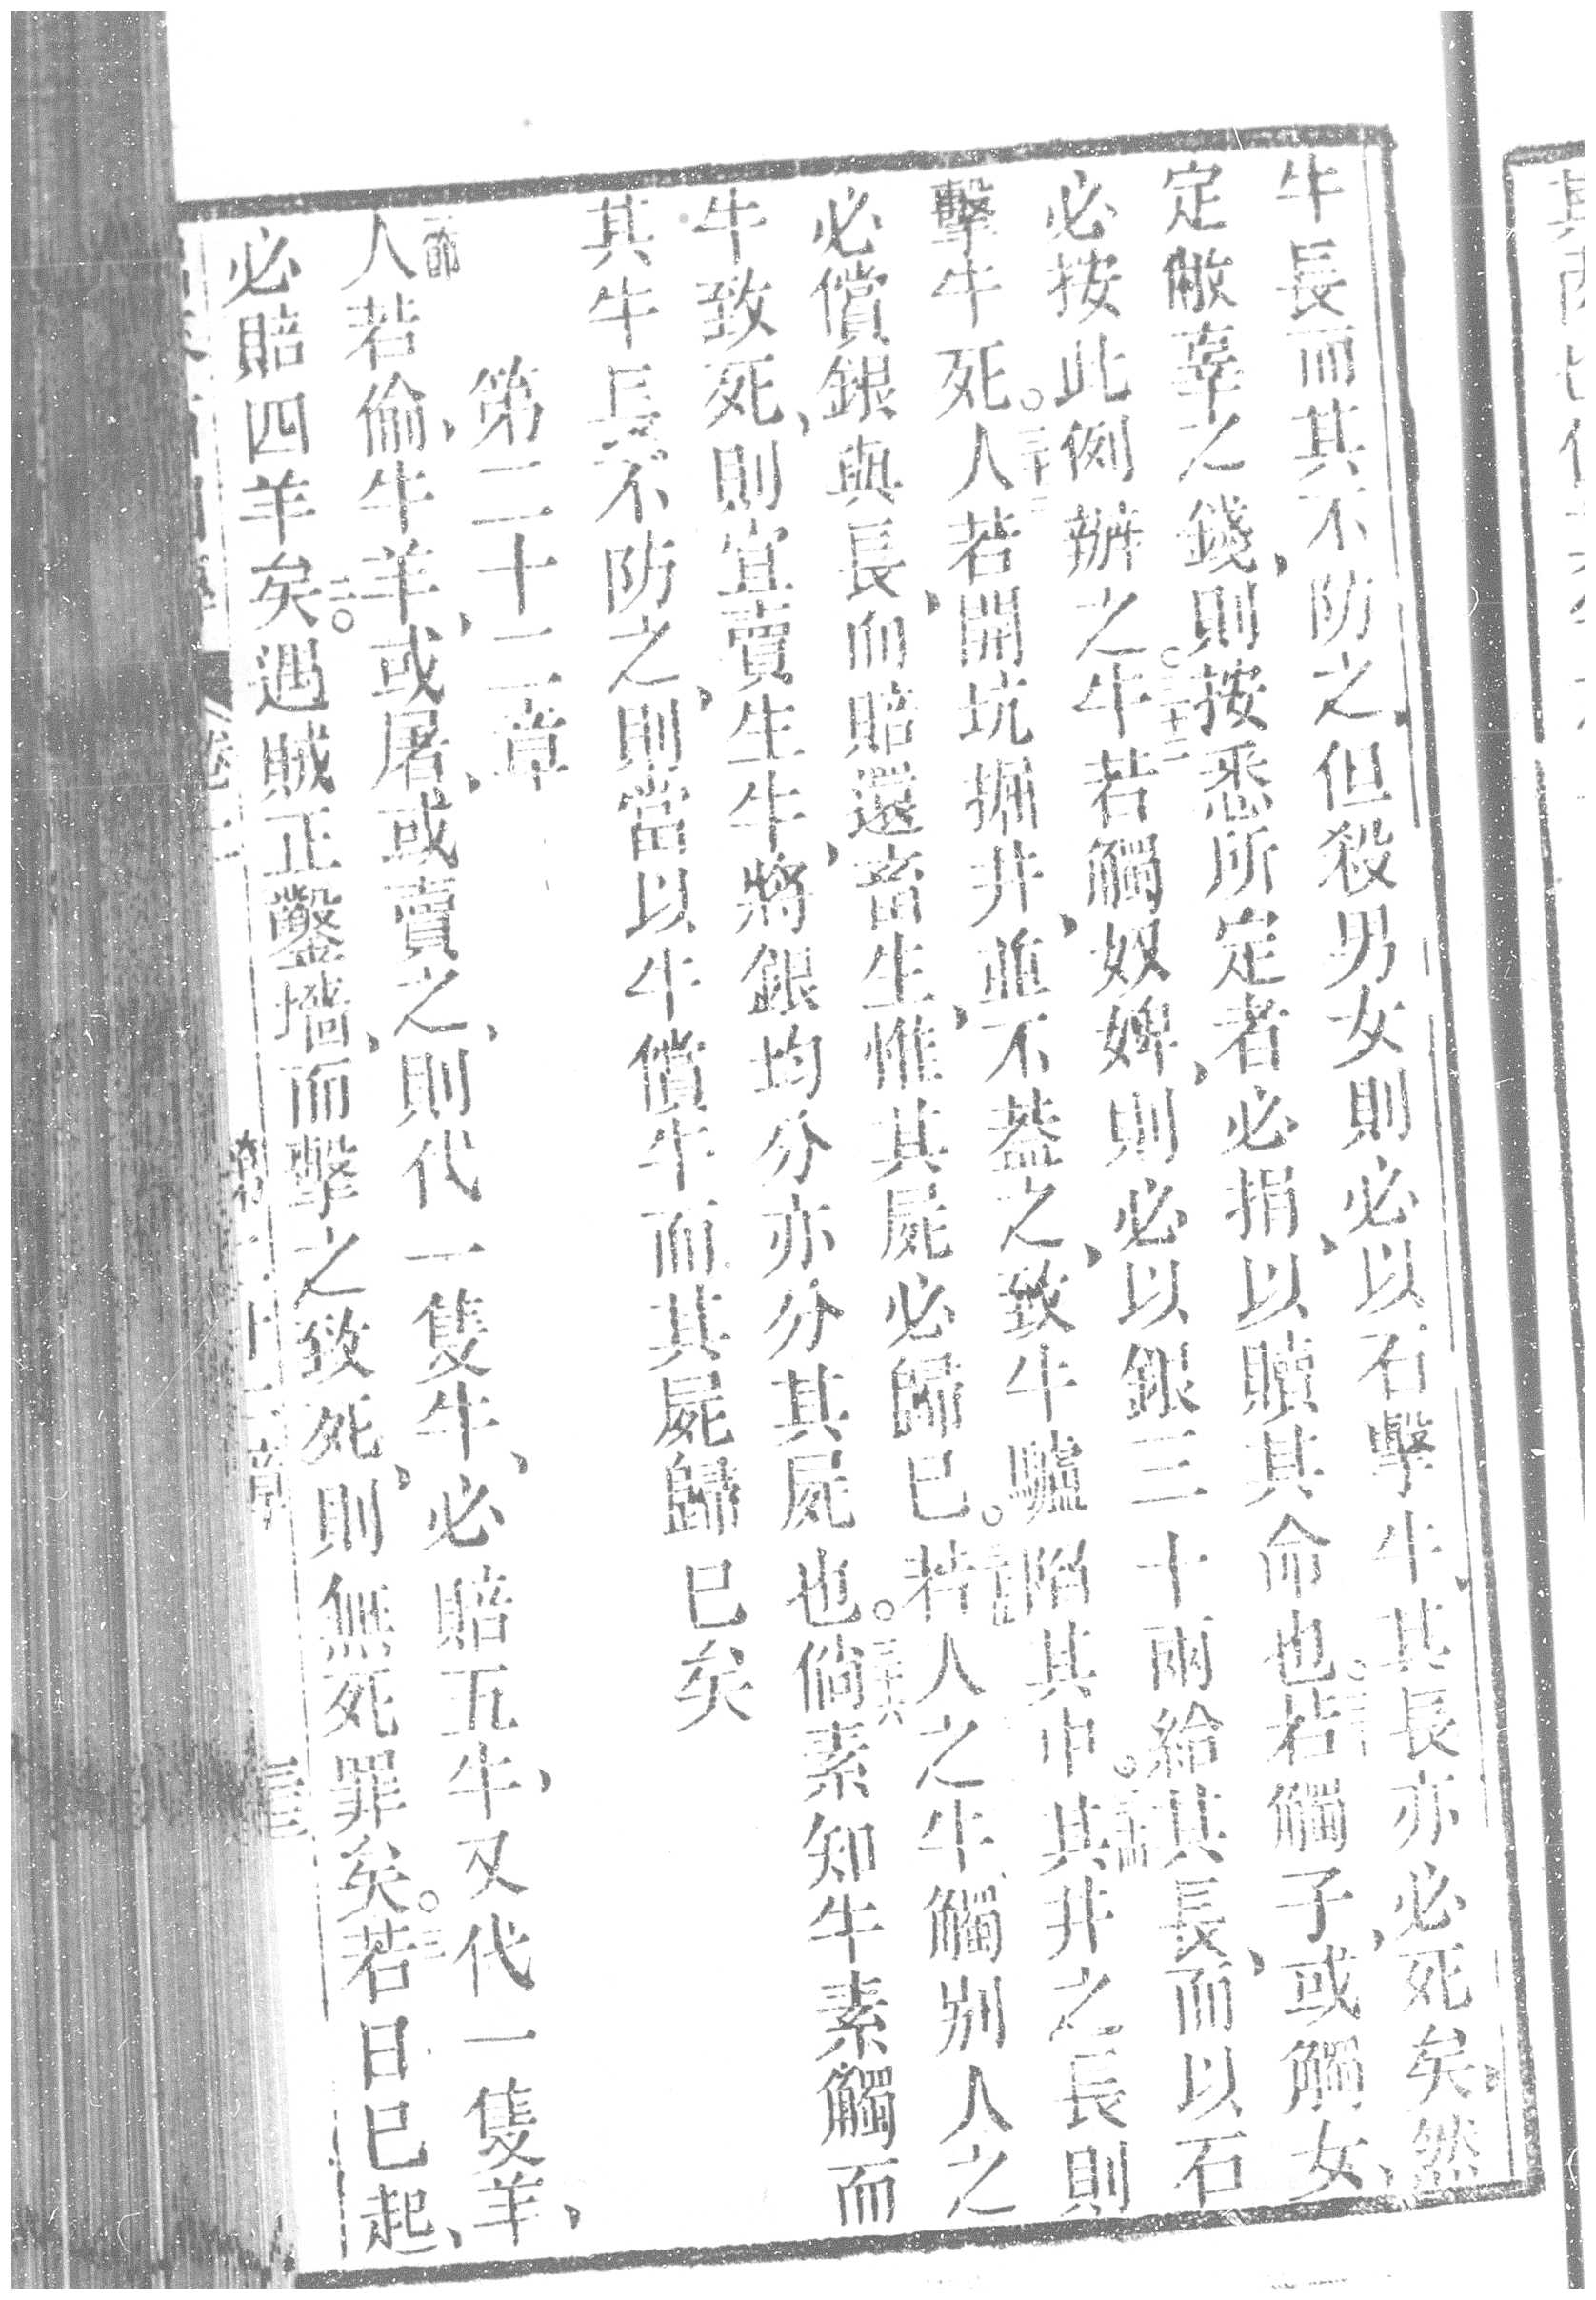 牛長而其不防之但殺男女則必以石擊牛其長亦必死矣。然
定敝辜之錢、則按悉所定者必捐、以贖其命也。若觸子、或觸女、
必按此例辦之。三十二牛若觸奴婢、則必以銀三十兩給其長、而以石
擊牛死。三十三人若開坑掘井、並不蓋之、致牛驢陷其中。三十四其井之長則
必償銀與長、而賠還畜生、惟其屍必歸已。三十五若人之牛、觸別人之
牛致死、則宜賣生牛、將銀均分亦分其屍也。三十六倘素知牛素觸而
其牛長不防之、則當以牛償牛而其屍歸已矣
第二十二章
一節人若偷、牛羊、或屠、或賣之、則代一隻牛、必賠五牛、又代一隻羊、
必賠四羊矣。二遇賊正鑿墻、而擊之致死、則無死罪矣。三若日已起、